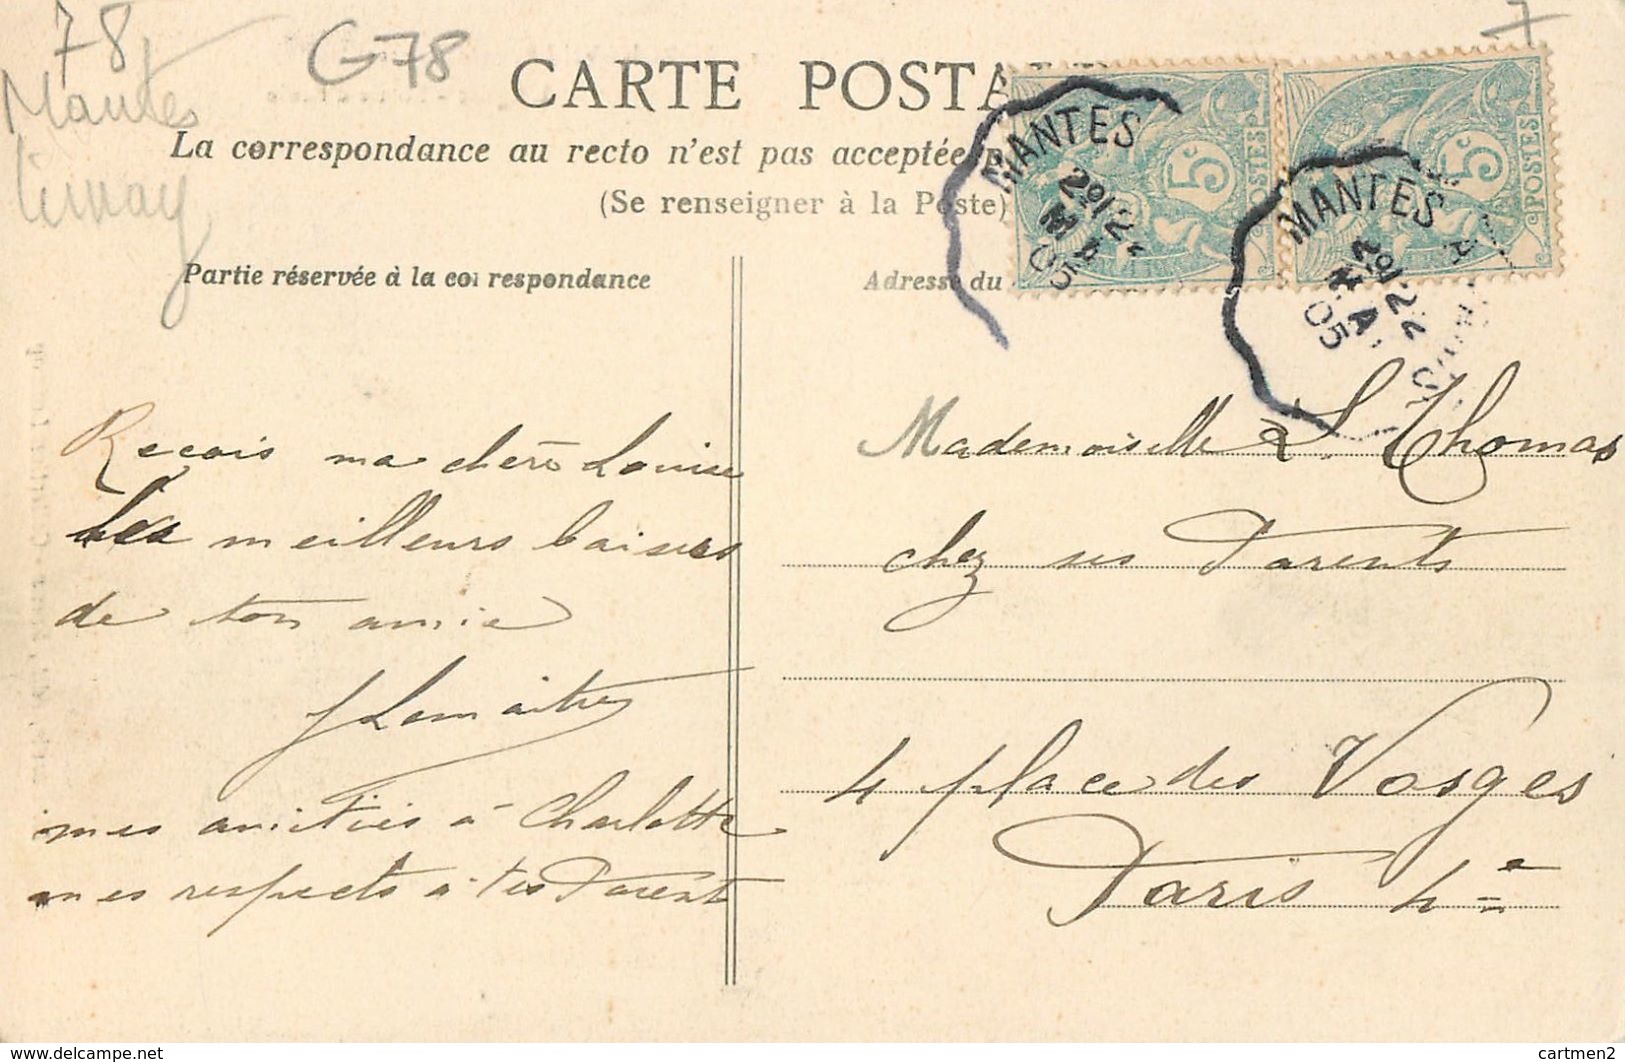 78
G78
7
Mantes
Limay
CARTE POSTA
La correspondance au recto n'est pas acceptée p
(Se renseigner à la Poste)
Partie réservée à la correspondance
Adresse du
5c
POSTES
5c
POSTES
MANTES
29 12
05
MANTES
29 12
05
Recois ma chère Louise
les meilleurs baisers
de ton amie
J Lemaitre
mes amitiés à Charlotte
mes respects à tes Parents
Mademoiselle L. Thomas
chez ses Parents
4 place des Vosges
Paris 4e
delcampe.net
cartmen2